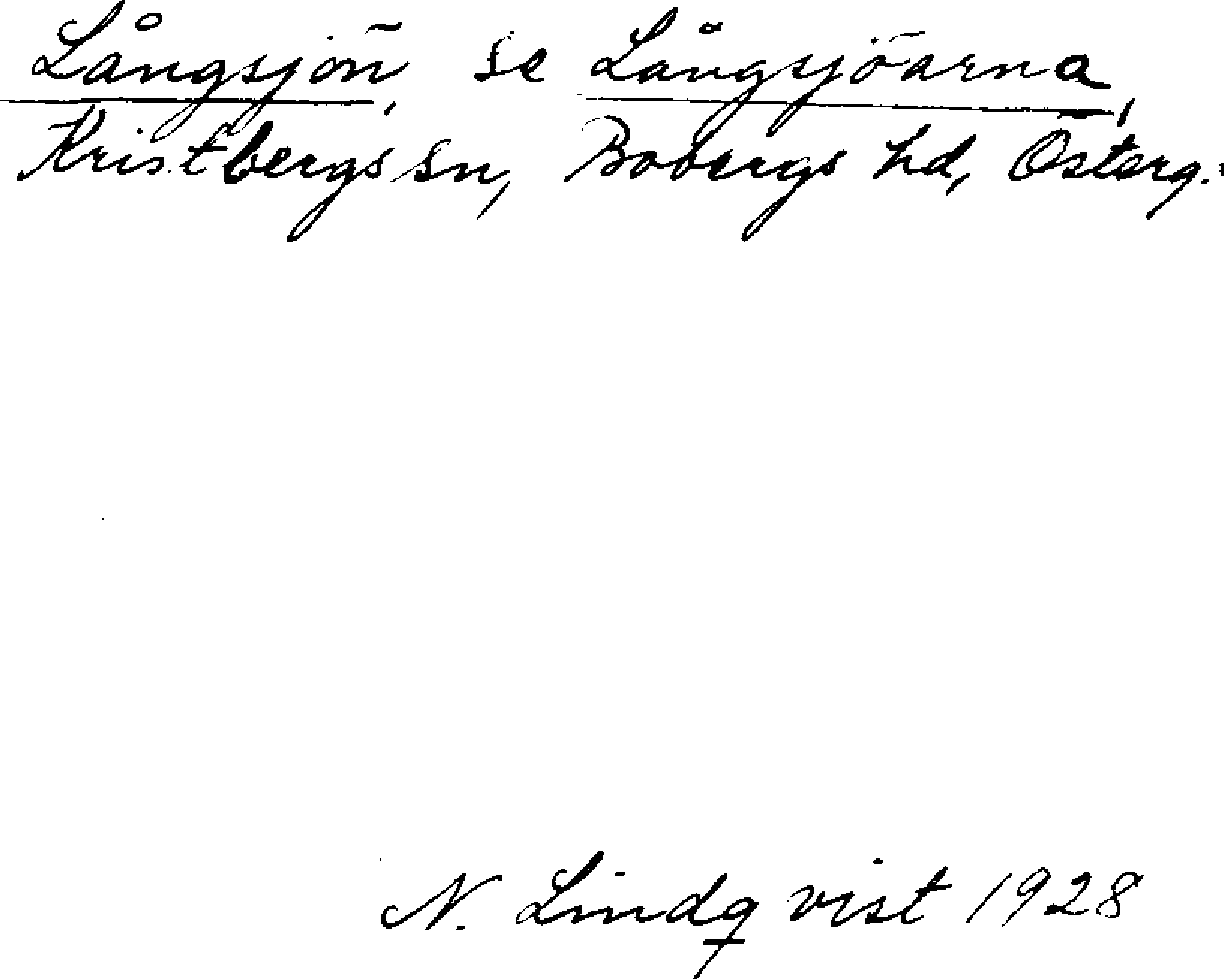 Långsjön, se Långsjöarna,
Kristbergs sn, Bobergs hd, Österg.
N. Lindqvist 1928